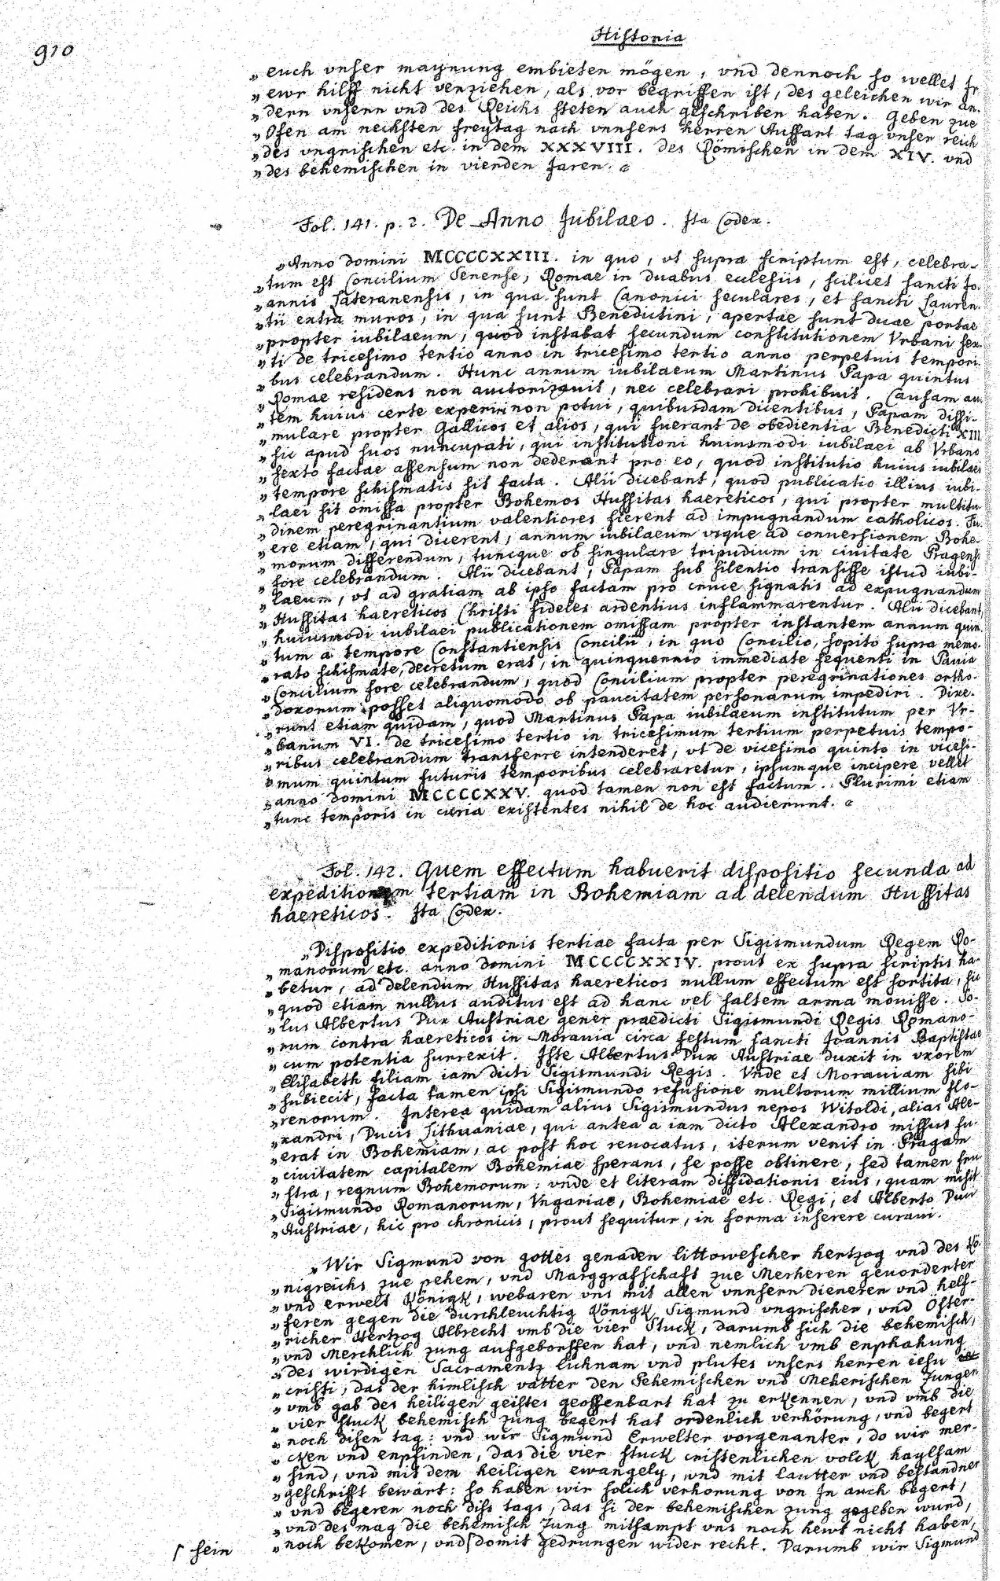 Historia
910
„ euch vnser maynung embieten mögen, vnd dennoch so wellet Ir
„ ewr hilff nicht verziehen, als vor begriffen ist, des geleichen wir an-
„ dern vnsern vnd des Reichs steten auch geschriben haben. Geben zue
„ Ofen am nechsten freytag nach vnnsers herren Auffart tag vnser reich
„ des vngrischen etc. in dem XXXVIII. des Römischen in dem XIV. vnd
„ des behemischen in vierden Jaren. „
Fol. 141. p. 2. De Anno Jubilaeo. Ita Codex.
„ Anno domini MCCCCXXIII. in quo, vt supra scriptum est, celebra-
„ tum est Concilium Senense, Romae in duabus ecclesiis, scilicet sancti Jo-
„ annis Lateranensis, in qua sunt Canonici seculares, et sancti Lauren-
„ tii extra muros, in qua sunt Benedictini, apertae sunt duae portae
„ propter iubilaeum, quod instabat secundum constitutionem Vrbani sex-
„ ti de tricesimo tertio anno in tricesimo tertio anno perpetuis tempori-
„ bus celebrandum. Hunc annum iubilaeum Martinus Papa quintus
„ Romae residens non auctorizauit, nec celebrari prohibuit. Causam au-
„ tem huius certe experiri non potui, quibusdam dicentibus, Papam dissi-
„ mulare propter Gallicos et alios, qui fuerant de obedientia Benedicti XIII
„ sic apud suos nuncupati, qui institutioni huiusmodi iubilaei ab Vrbano
„ sexto factae assensum non dederant pro eo, quod institutio huius iubilaei
„ tempore schismatis sit facta. Alii dicebant, quod publicatio illius iubi-
„ laei sit omissa propter Bohemos Hussitas haereticos, qui propter multitu-
„ dinem peregrinantium valentiores fierent ad impugnandum catholicos. Fu-
„ ere etiam, qui dicerent, annum iubilaeum vsque ad conuersionem Bohe-
„ morum differendum, tuncque ob singulare tripudium in ciuitate Pragensi
„ fore celebrandum. Alii dicebant, Papam sub silentio transisse istud iubi-
„ laeum, vt ad gratiam ab ipso factam pro cruce signatis ad expugnandum
„ Hussitas haereticos Christi fideles ardentius inflammarentur. Alii dicebant,
„ huiusmodi iubilaei publicationem omissam propter instantem annum quin-
„ tum a tempore Constantiensis Concilii, in quo Concilio, sopito supra memo-
„ rato schismate, decretum erat, in quinquennio immediate sequenti in Pauia
„ Concilium fore celebrandum, quod Concilium propter peregrinationes ortho-
„ doxorum posset aliquomodo ob paucitatem personarum impediri. Dixe-
„ runt etiam quidam, quod Martinus Papa iubilaeum institutum per Vr-
„ banum VI. de tricesimo tertio in tricesimum tertium perpetuis tempo-
„ ribus celebrandum transferre intenderet, vt de vicesimo quinto in vicesi-
„ mum quintum futuris temporibus celebraretur, ipsumque incipere vellet
„ anno domini MCCCCXXV. quod tamen non est factum. Plurimi etiam
„ tunc temporis in curia existentes nihil de hoc audierunt. „
Fol. 142. Quem effectum habuerit dispositio secunda ad
expeditionem tertiam in Bohemiam ad delendum Hussitas
haereticos. Ita Codex.
„ Dispositio expeditionis tertiae facta per Sigismundum Regem Ro-
„ manorum etc. anno domini MCCCCXXIV. prout ex supra scriptis ha-
„ betur, ad delendum Hussitas haereticos nullum effectum est sortita, sic
„ quod etiam nullus auditus est ad hanc vel saltem arma mouisse. So-
„ lus Albertus Dux Austriae gener praedicti Sigismundi Regis Romano-
„ rum contra haereticos in Morauia circa festum sancti Joannis Baptistae
„ cum potentia surrexit. Iste Albertus Dux Austriae duxit in vxorem
„ Elisabeth filiam iam dicti Sigismundi Regis. Vnde et Morauiam sibi
„ subiecit, facta tamen ipsi Sigismundo refusione multorum millium flo-
„ renorum. Interea quidam alius Sigismundus nepos Witoldi, alias Ale-
„ xandri, Ducis Lithuaniae, qui antea a iam dicto Alexandro missus fu-
„ erat in Bohemiam, ac post hoc reuocatus, iterum venit in Pragam
„ ciuitatem capitalem Bohemiae sperans, se posse obtinere, sed tamen fru-
„ stra, regnum Bohemorum: vnde et literam diffidationis eius, quam misit
„ Sigismundo Romanorum, Vngariae, Bohemiae etc. Regi, et Alberto Duci
„ Austriae, hic pro chronicis, prout sequitur, in forma inserere curaui.
„ Wir Sigmund von gottes genaden littowescher hertzog vnd des Kö-
„ nigreichs zue pehem, vnd Marggrafschaft zue Merheren geuorderter
„ vnd erwelt Königk, webaren vns mit allen vnnsern dieneren vnd helf-
„ feren gegen die durchleuchtig Königk, Sigmund vngrischer, vnd Öster-
„ richer Hertzog Albrecht vmb die vier Stuck, darumb sich die behemisch,
„ vnd Merchlich zung aufgeborffen hat, vnd nemlich vmb enphahung
„ des wirdigen Sacramentz lichnam vnd plutes vnsers herren iesu
„ cristi, das der himlisch vatter den Pehemischen vnd Meherischen Zungen
„ vmb gab des heiligen geistes geoffenbart hat zu erkennen, vnd vmb die
„ vier stuck behemisch zung begert hat ordenlich verhörung, vnd begert
„ noch disen tag: vnd wir Sigmund Erwelter vorgenanter, do wir mer-
„ cken vnd enpfinden, das die vier stuck cristenlichen volck haylsam
„ sind, vnd mit dem heiligen ewangely, vnd mit lautter vnd bestandner
„ geschrifft bewärt: so haben wir solich verhorung von In auch begert,
„ vnd begeren noch diss tags, das si der behemischen zung gegeben wurd,
„ vnd des mag die behemisch Zung mitsampt vns noch hewt nicht haben,
„ noch bekomen, vnd ⌈ domit gedrungen wider recht. Darumb wir Sigmund
⌈ sein